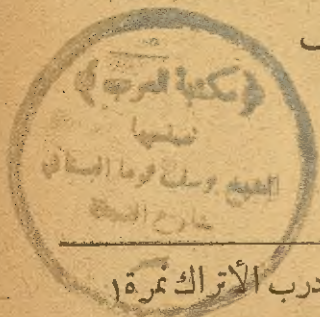 ف
﴿مكتبة العرب﴾
لصاحبها
الشيخ يوسف توما البستاني
بشارع الفجالة
درب الأتراك نمرة (